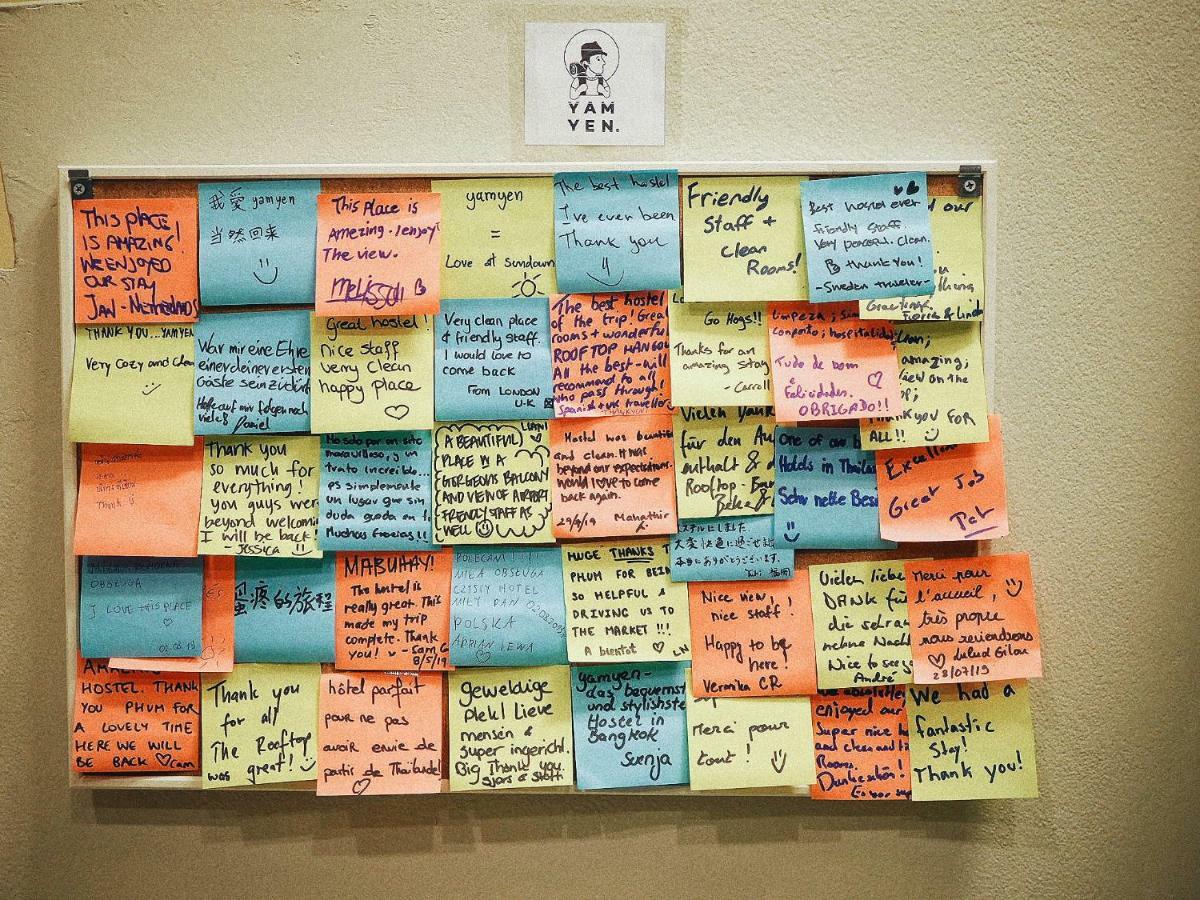 YAM
YEN.
THIS PLACE
IS AMAZING!
WE ENJOYED
OUR STAY
JAN - NETHERLANDS
我爱 yamyen
当然回来
This Place is
Amezing. I enjoy
The view.
Melissa
yamyen
=
Love at Sundown
The best hostel
I've ever been
Thank you
Friendly
Staff +
Clean
Rooms!
Best hostel ever
friendly Staff.
Very peaceful. Clean.
thank you!
- Sweden traveler -
d our
THANK YOU...YAMYEN
Very Cozy and Clean
War mir eine Ehre
einer deiner ersten
Gäste sein zu dürf
Daniel
Great hostel!
nice staff
very clean
happy place
Very clean place
& friendly staff.
I would love to
come back
From LONDON
U.K
The best hostel
of the trip! Grea
rooms + wonderful
ROOFTOP HANGOU
All the best - will
recommend to all
who pass through!
Spanish + UK travellers
Go Hogs!!
Thanks for an
amazing stay
- Carroll
Limpeza; Sim
conforto; hospitalida
Tudo de bom
é
Felicidades.
OBRIGADO!!
amazing;
view on the
Thank you FOR
ALL!!
Thank you
so much for
everything!
you guys wer
beyond welcomi
I will be back!
- Jessica !!
Ha sido por un sitio
maravilloso, y un
trato increíble...
es simplemente
un lugar que sin
duda queda en
Muchas Gracias!!
A BEAUTIFUL
PLACE W/ A
GORGEOUS BALCONY
AND VIEW OF AIRPORT
FRIENDLY STAFF AS
WELL
Hostel was beautif
and clean. It was
beyond our expectations.
Would love to come
back again.
29/4/19 Mahathir
Vielen Dank
für den Au
enthalt & d
Rooftop-
One of our b
Hotels in Thaila
Sehr nette Besi
Excellen
Great Job
Pat
大変快適に過ごせ
本当にありがとうございます。
OBSŁUGA
I LOVE THIS PLACE
02.08.19
蛋疼的旅程
MABUHAY!
The hostel is
really great. This
made my trip
complete. Thank
you! - Sam G
8/5/19
POLECAM!!!!
MIŁA OBSŁUGA
CZYSTY HOTEL
MIŁY PAN
POLSKA
ADRIAN EWA
HUGE THANKS T
PHUM FOR BEIN
SO HELPFUL &
DRIVING US TO
THE MARKET !!!
A bientot
Nice view,
nice staff.
Happy to be
here!
Veronika CR
Vielen liebe
DANK für
die sehr an
nehme Nach
Nice to see y
André
Merci pour
l'accueil,
très propre
nous reviendrons
28/07/19
HOSTEL. THANK
YOU PHUM FOR
A LOVELY TIME
HERE WE WILL
BE BACK Cam
Thank you
for all
The Rooftop
was great!
hôtel parfait
pour ne pas
avoir envie de
partir de Thaïlande!
geweldige
Plek! Lieve
mensen &
super ingericht.
Big Thank you.
yamyen-
das bequemst
und stylishste
Hostel in
Bangkok
Svenja
Merci pour
tout!
enjoyed our
Super nice h
and clean and
Rooms.
Dankeschön!
We had a
fantastic
Stay!
Thank you!